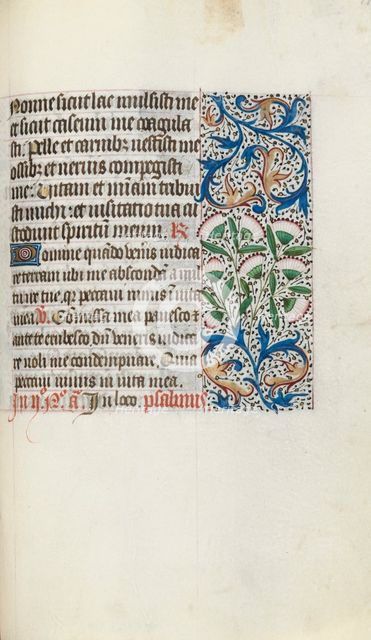 Nonne sicut lac mulsisti me
et sicut caseum me coagula
sti. Pelle et carnibz vestisti me
ossibz et nervis compegisti
me. Vitam et miam tribui
sti michi: et visitatio tua cu
stodivit spiritu meum. R
Domine quado veneris iudica
re terram ubi me abscondam a vul
tu ire tue, qz peccavi nimis i vita
mea. V. Comissa mea pavesco et
ante te erubesco du veneris iudica
re noli me condempnare. Quia
peccavi nimis in vita mea.
In ijo. no. a. In loco. psalmus